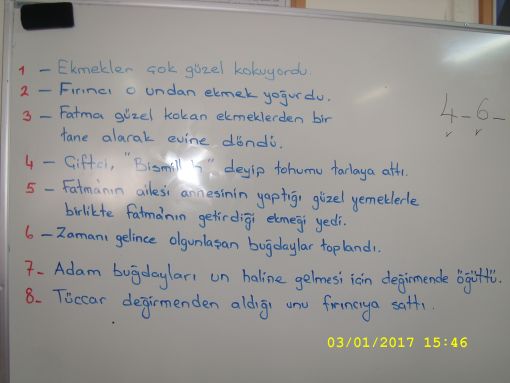 1 - Ekmekler çok güzel kokuyordu.
2 - Fırıncı o undan ekmek yoğurdu.
3 - Fatma güzel kokan ekmeklerden bir
tane alarak evine döndü.
4 - Çiftçi, "Bismillah" deyip tohumu tarlaya attı.
5 - Fatma'nın ailesi annesinin yaptığı güzel yemeklerle
birlikte fatma'nın getirdiği ekmeği yedi.
6 - Zamanı gelince olgunlaşan buğdaylar toplandı.
7- Adam buğdayları un haline gelmesi için değirmende öğüttü.
8- Tüccar değirmenden aldığı unu fırıncıya sattı.
4-6-
03/01/2017 15:46